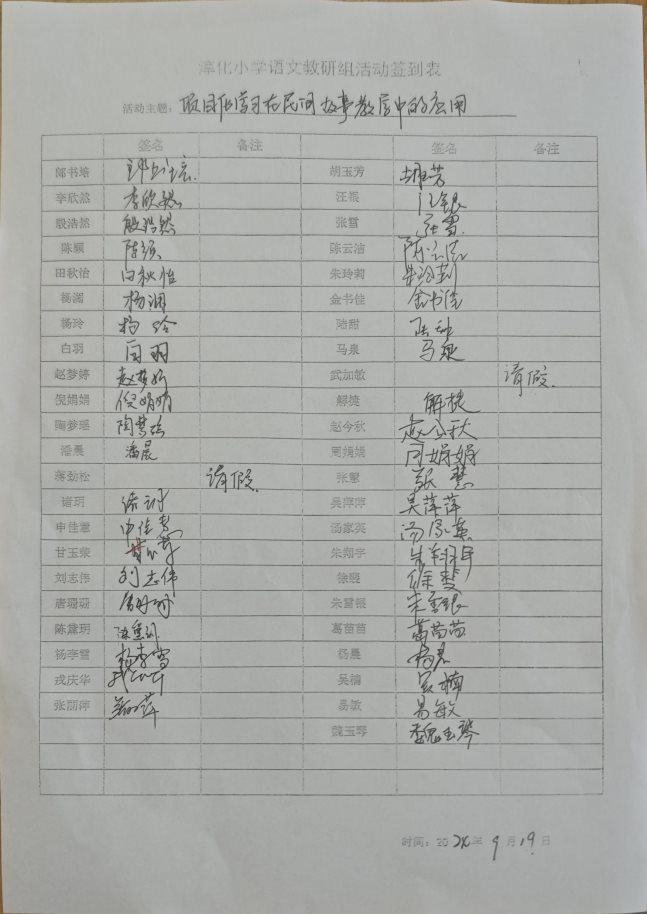 淳化小学语文教研组活动签到表
活动主题：项目化学习在民间故事教学中的应用
签名 备注 签名 备注
郎书培 胡玉芳 胡玉芳
李欣然 李欣然 汪银 汪银
殷浩然 殷浩然 张雪 张雪
陈颖 陈颖 陈云洁 陈云洁
田秋怡 田秋怡 朱玲莉 朱玲莉
杨澜 杨澜 金书佳 金书佳
杨玲 杨玲 陆甜 陆甜
白羽 白羽 马泉 马泉
赵梦婷 赵梦婷 武加敏 请假
倪娟娟 倪娟娟 解婕 解婕
陶梦瑶 陶梦瑶 赵今秋 赵今秋
潘晨 潘晨 周娟娟 周娟娟
蒋劲松 请假 张慧 张慧
诸玥 诸玥 吴萍萍 吴萍萍
申佳慧 申佳慧 汤家英 汤家英
甘玉荣 朱翔宇 朱翔宇
刘志伟 刘志伟 徐璎 徐
唐珊珊 唐珊珊 朱雪银 朱雪银
陈霖玥 葛苗苗 葛苗苗
杨李雪 杨李雪 杨晨 杨晨
戎庆华 吴楠 吴楠
张丽萍 易敏 易敏
魏玉琴 魏玉琴
时间：2024年9月19日